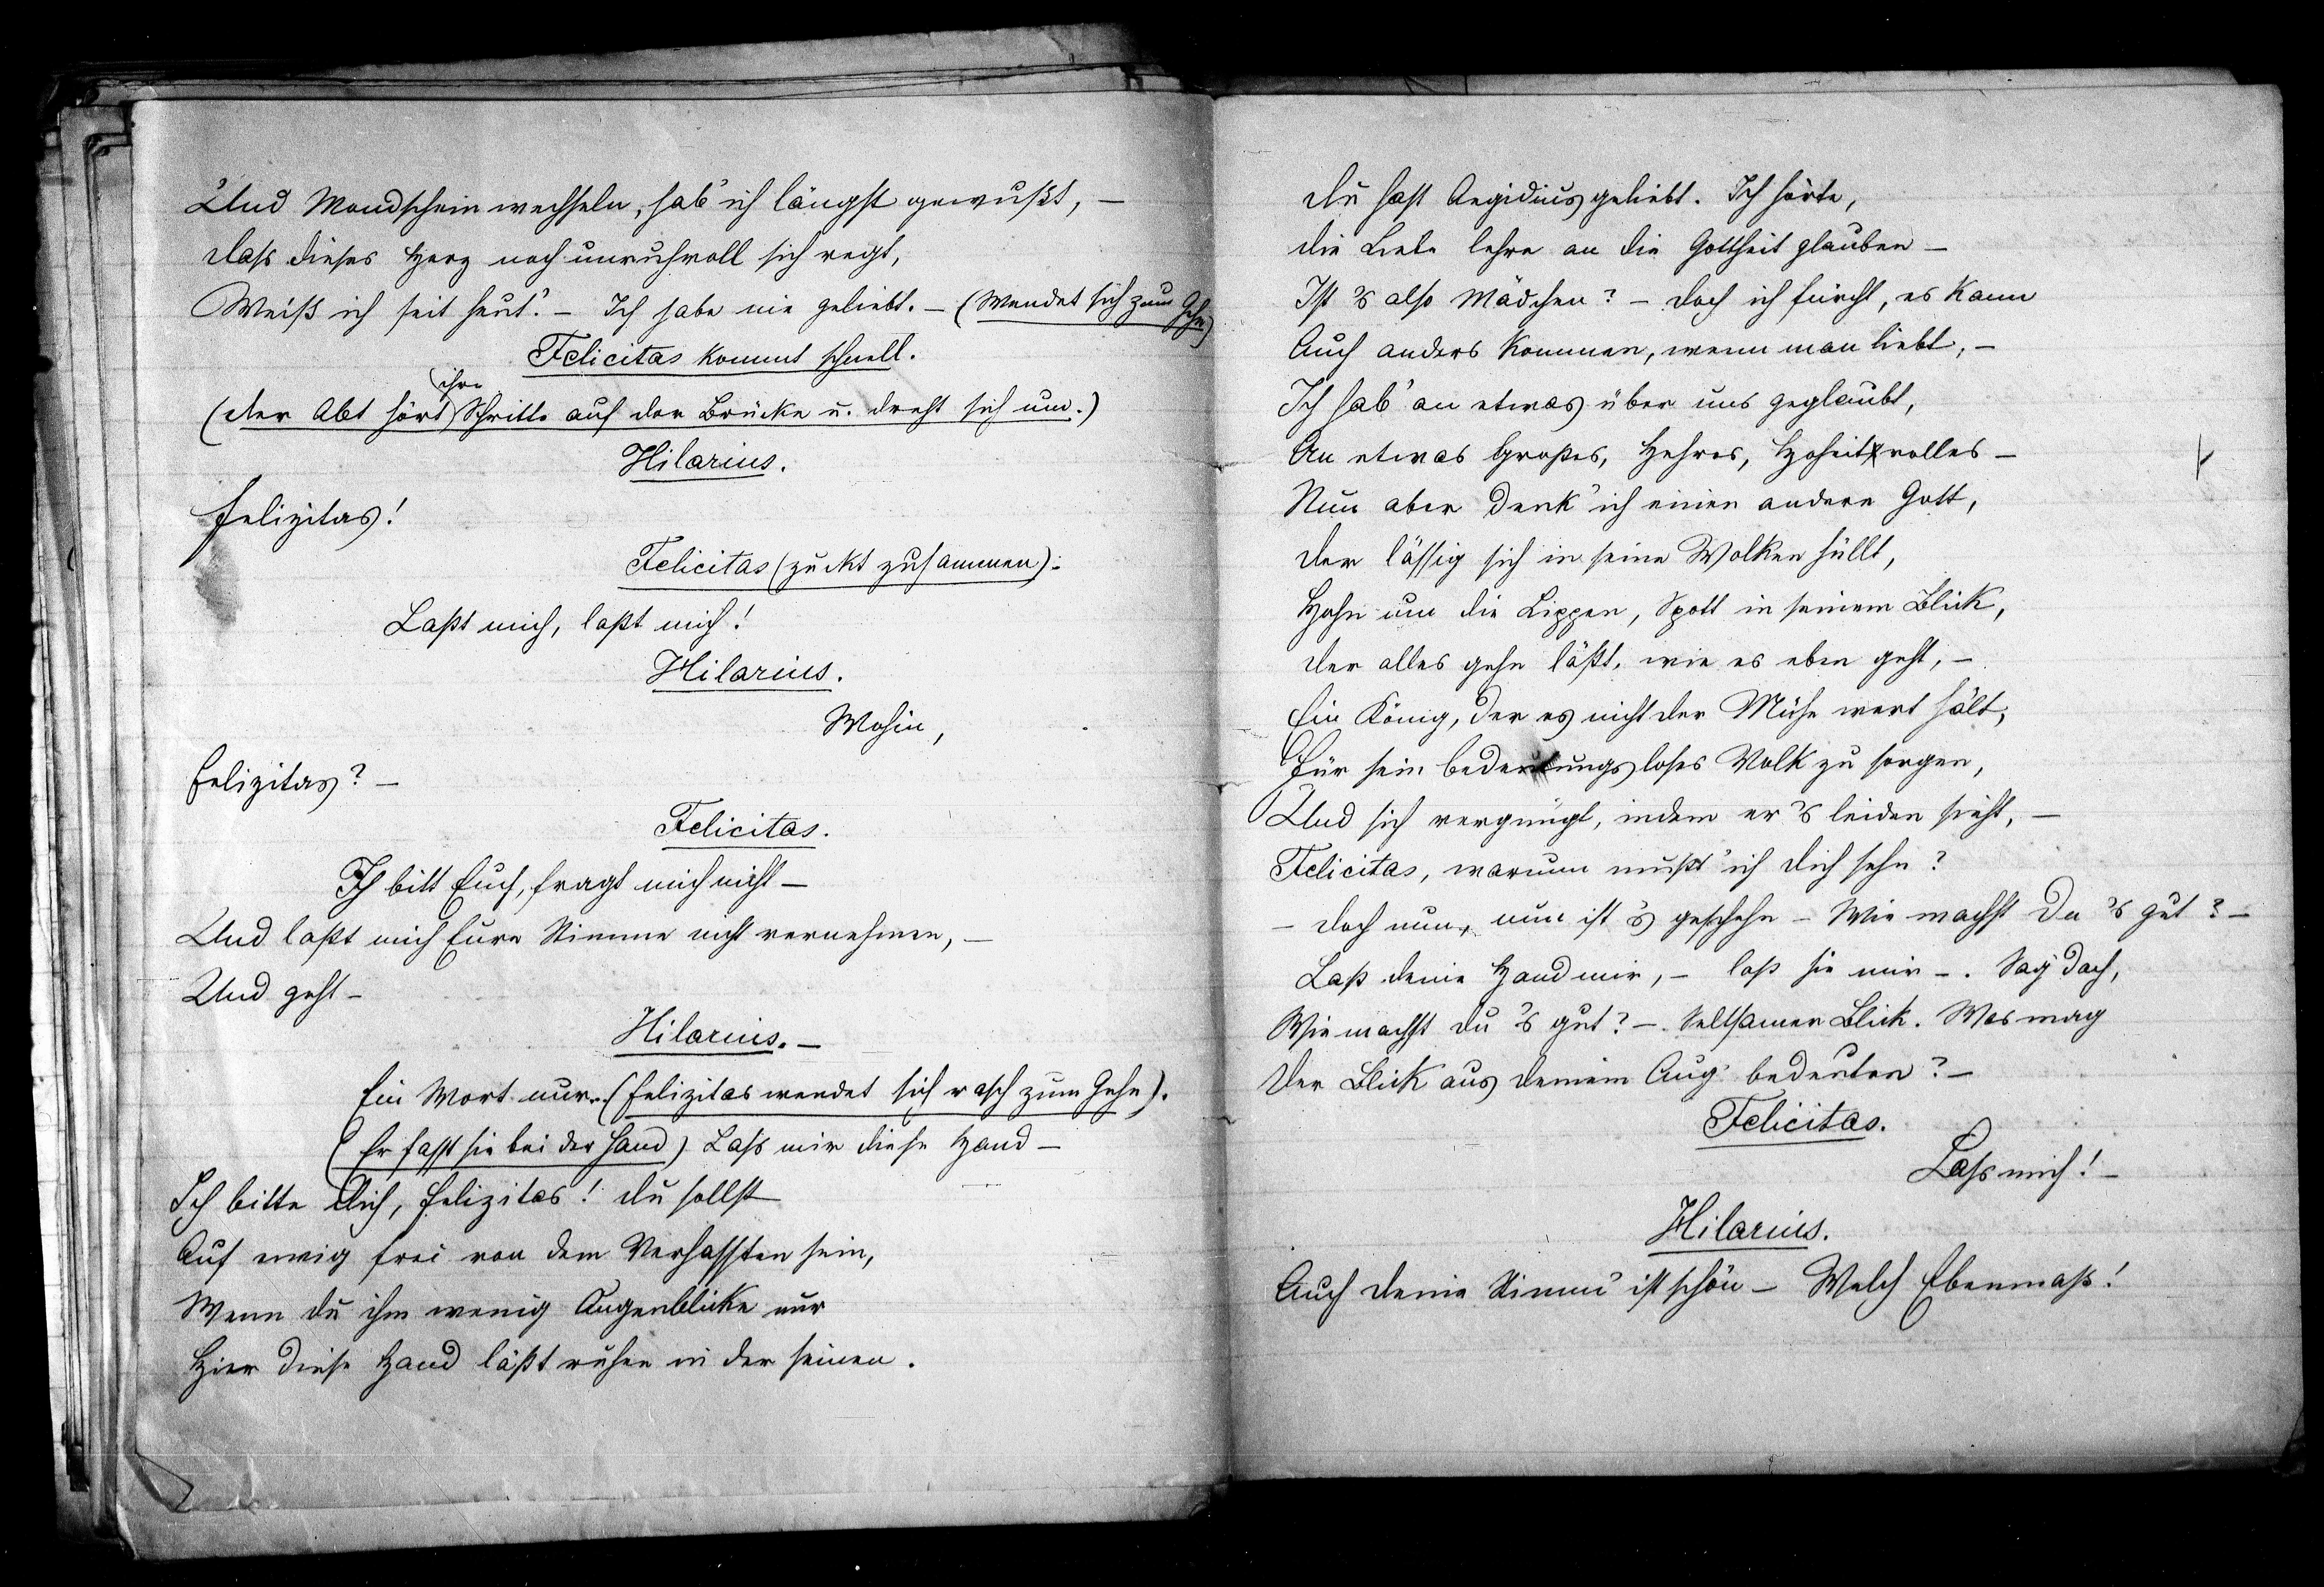 Und Mondschein wechseln, hab' ich längst gewußt, –
Dass dieses Herz noch unruhvoll sich regt,
Weiß ich seit heut'. – Ich habe nie geliebt. – (Wendet sich zum Gehn)
Felicitas kommt schnell.
(Der Abt hört ihre Schritte auf der Brücke u. dreht sich um.)
Hilarius.
Felizitas!
Felicitas (zuckt zusammen):
Laßt mich, laßt mich!
Hilarius.
Wohin,
Felizitas? –
Felicitas.
Ich bitt Euch, fragt mich nicht –
Und laßt mich Eure Stimme nicht vernehmen, –
Und geht –
Hilarius. –
Ein Wort nur. (Felizitas wendet sich rasch zum Gehn).
(Er fasst sie bei der Hand) Lass mir diese Hand –
Ich bitte Dich, Felizitas! Du sollst
Auf ewig frei von dem Verhassten sein,
Wenn du ihm wenig Augenblicke nur
Hier diese Hand läßt ruhen in der seinen.
Du hast Aegidius geliebt. Ich hörte,
die Liebe lehre an die Gottheit glauben –
Ist 's also Mädchen? – Doch ich fürcht, es kann
Auch anders kommen, wenn man liebt, –
Ich hab' an etwas über uns geglaubt,
An etwas Großes, Hehres, Hoheitvolles –
Nun aber denk' ich einen andern Gott,
Der lässig sich in seine Wolken hüllt,
Hohn um die Lippen, Spott in seinem Blick,
Der alles gehn läßt, wie es eben geht, –
Ein König, der es nicht der Mühe wert hält,
Für sein bedeutungsloses Volk zu sorgen,
Und sich vergnügt, indem er 's leiden sieht, –
Felicitas, warum mußt' ich Dich sehn?
– Doch nun, nun ist 's geschehn – Wie machst Du 's gut? –
Laß deine Hand mir, – laß sie mir –. Sag' doch,
Wie machst du 's gut? –. Seltsamer Blick. Was mag
Der Blick aus deinem Aug' bedeuten? –
Felicitas.
Lass mich! –
Hilarius.
Auch deine Stimm' ist schön – Welch Ebenmaß!